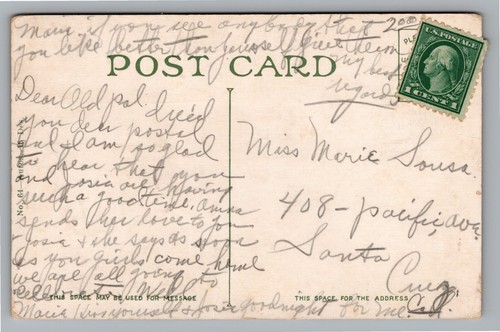 Marie if you see anybody that
you like better than yourself give them
my best
regards
POST CARD
U.S. POSTAGE
1 CENT 1
Dear Old pal. rec'd
your dear postal
and I am so glad
to hear that you
and Josie are having
such a good time. Anna
sends her love to you
Josie & she says as soon
as you girls come home
we are all going to
celebrate. Well
Marie kiss yourself & Josie goodnight for me.
THIS SPACE MAY BE USED FOR MESSAGE
No. 61
Miss Marie Sousa
408 - Pacific, ave
Santa
Cruz
Cal.
THIS SPACE FOR THE ADDRESS